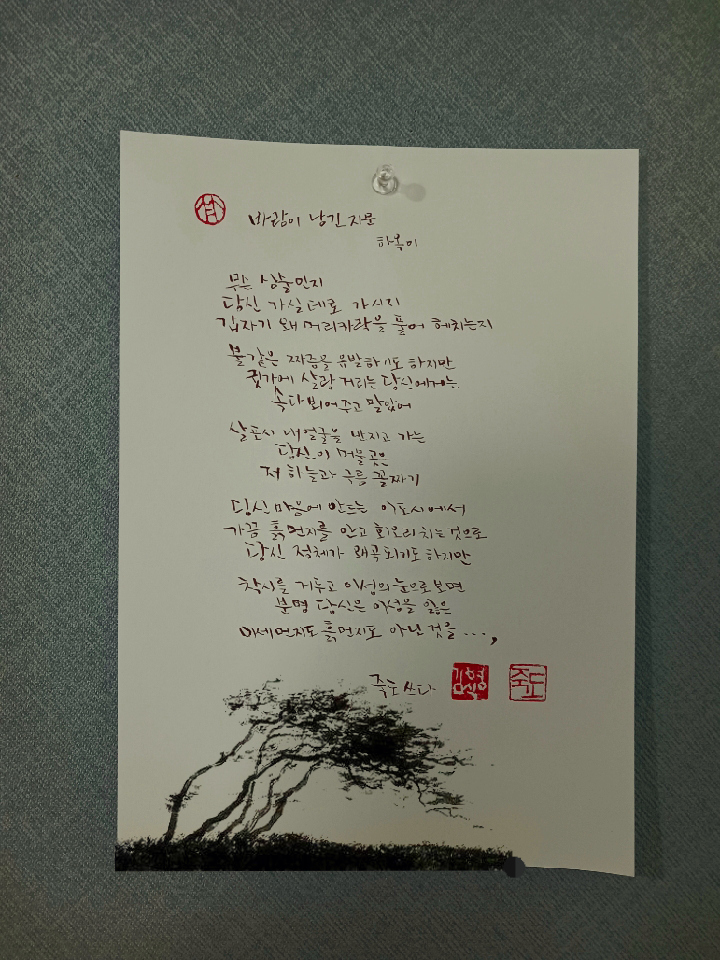 바람이 남긴 지문
하옥이
무슨 심술인지
당신 가실데로 가시지
갑자기 왜 머리카락을 풀어 헤치는지
불같은 짜증을 유발하기도 하지만
귓가에 살랑 거리는 당신에게는
속 다 뵈어주고 말았어
살포시 내 얼굴을 만지고 가는
당신이 머물 곳은
저 하늘과 구름 꼴짜기
당신 마음에 안드는 이 도시에서
가끔 흙먼지를 안고 회오리 치는 것으로
당신 정체가 왜곡되기도 하지만
착시를 거두고 이성의 눈으로 보면
분명 당신은 이성을 잃은
미세먼지도 흙먼지도 아닌 것을...,
죽도 쓰다
김형식
죽도